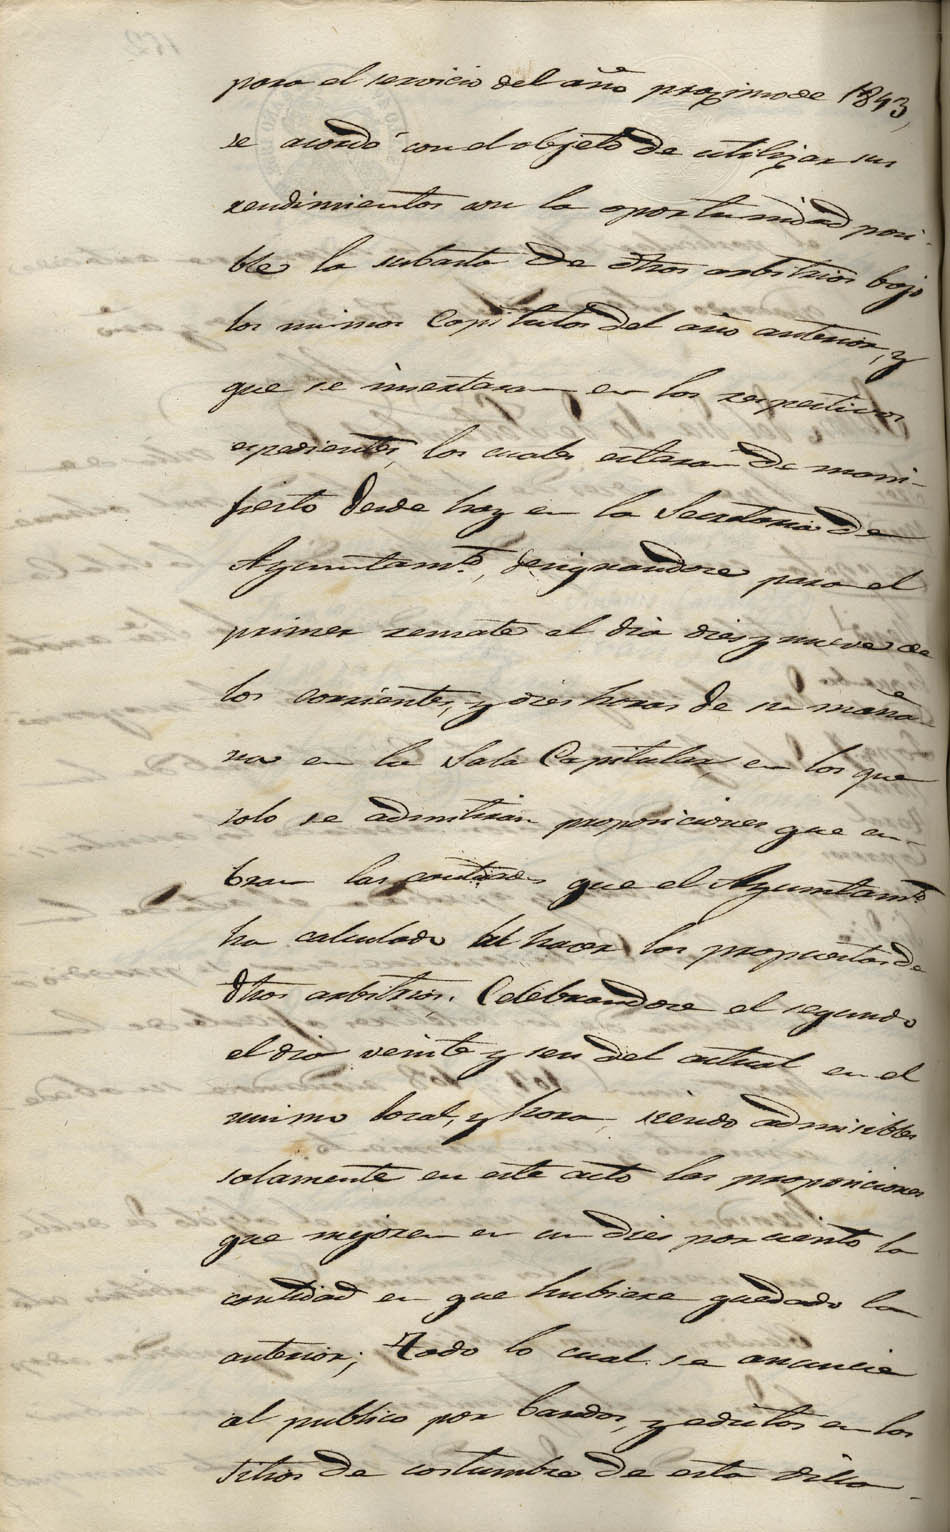 para el servicio del año proximo de 1843,
se acordó con el objeto de utilizar sus
rendimientos con la oportunidad posi-
ble la subasta de dhos arbitrios bajo
los mismos Capitulos del año anterior, y
que se insertaran en los respectivos
espedientes, los cuales estaran de mani-
fiesto desde hoy en la Secretaria de
Ayuntamto., designandose para el
primer remate el dia diez y nueve de
los corrientes, y diez horas de su maña-
na en la Sala Capitular en los que
solo se admitiran proposiciones que cu-
bran las cantidades que el Ayuntamto.
ha calculado al hacer los propuestos de
dhos arbitrios. Celebrandose el segundo
el dia veinte y seis del actual en el
mismo local, y hora, siendo admisibles
solamente en este acto las proposiciones
que mejoren en un diez por ciento la
cantidad en que hubiere quedado la
anterior; Todo lo cual se anuncie
al publico por bandos, y edictos en los
sitios de costumbre de esta villa.